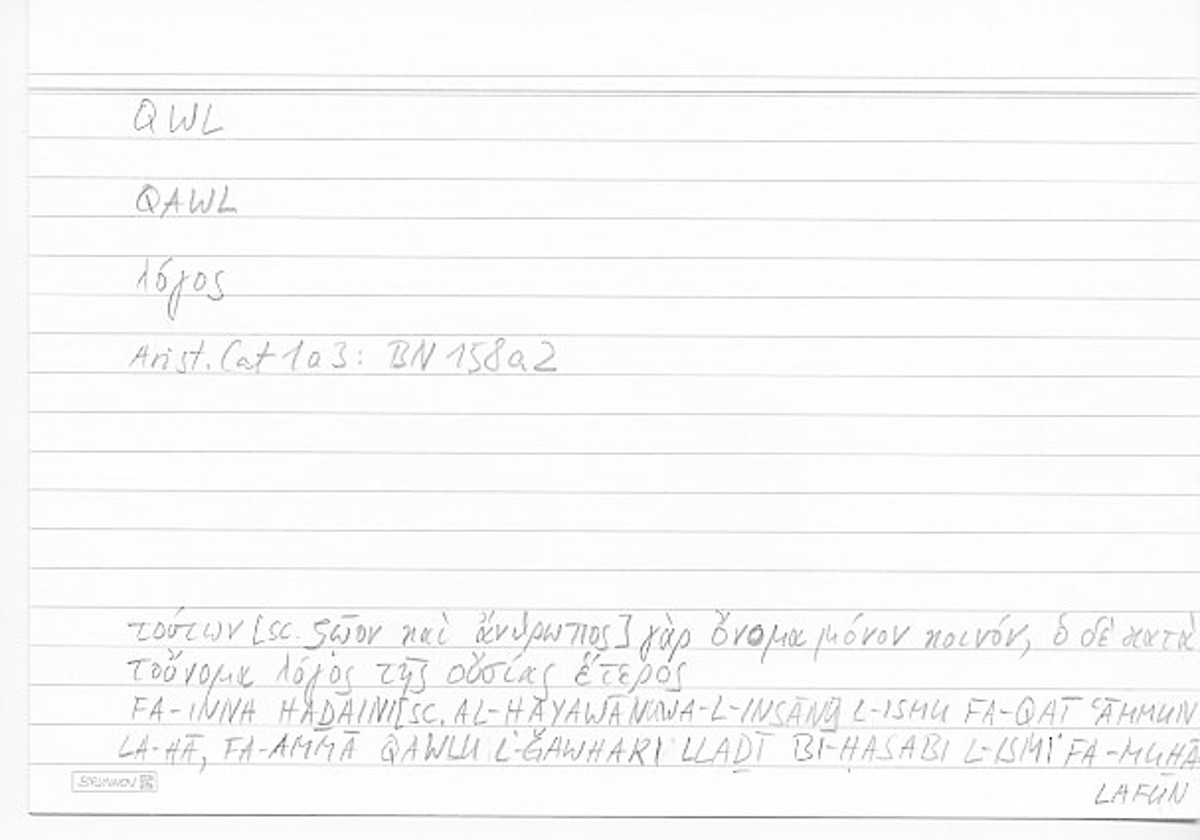 QWL
QAWL
λόγος
Arist. Cat 1a3: BN 158a2
τούτων [sc. ζῷον καὶ ἄνθρωπος] γὰρ ὄνομα μόνον κοινόν, ὁ δὲ κατὰ
τοὔνομα λόγος τῆς οὐσίας ἕτερος
FA-INNA HĀḎAINI [SC. AL-ḤAYAWĀNU WA-L-INSĀNU] L-ISMU FA-QAṬ ʿĀMMUN
LA-HĀ, FA-AMMĀ QAWLU L-ǦAWHARI LLAḎĪ BI-ḤASABI L-ISMI FA-MUḪĀ-
LAFUN